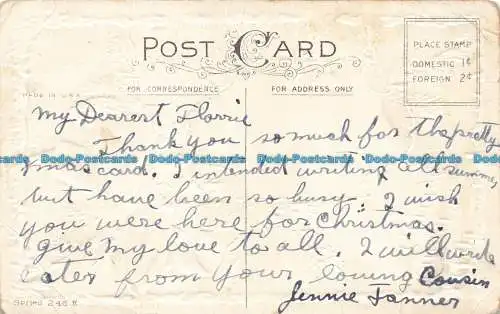 POST CARD
PLACE STAMP
DOMESTIC 1¢
FOREIGN 2¢
MADE IN U.S.A.
FOR CORRESPONDENCE
FOR ADDRESS ONLY
My Dearest Florrie
Thank you so much for the pretty
Xmas card. I intended writing all summer,
but have been so busy. I wish
you were here for Christmas.
give my love to all. I will write
later from your loving Cousin
Jennie Tanner
Dodo-Postcards Dodo-Postcards Dodo-Postcards Dodo-Postcards Dodo-Postcards